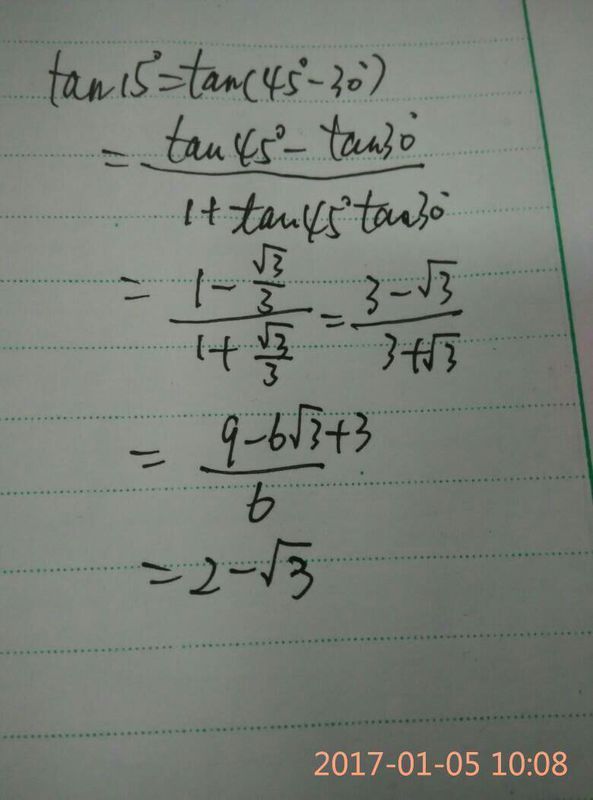 tan15°=tan(45°-30°)
=(tan45°-tan30°)/(1+tan45°tan30°)
=(1-√3/3)/(1+√3/3)=(3-√3)/(3+√3)
=(9-6√3+3)/6
=2-√3
2017-01-05 10:08